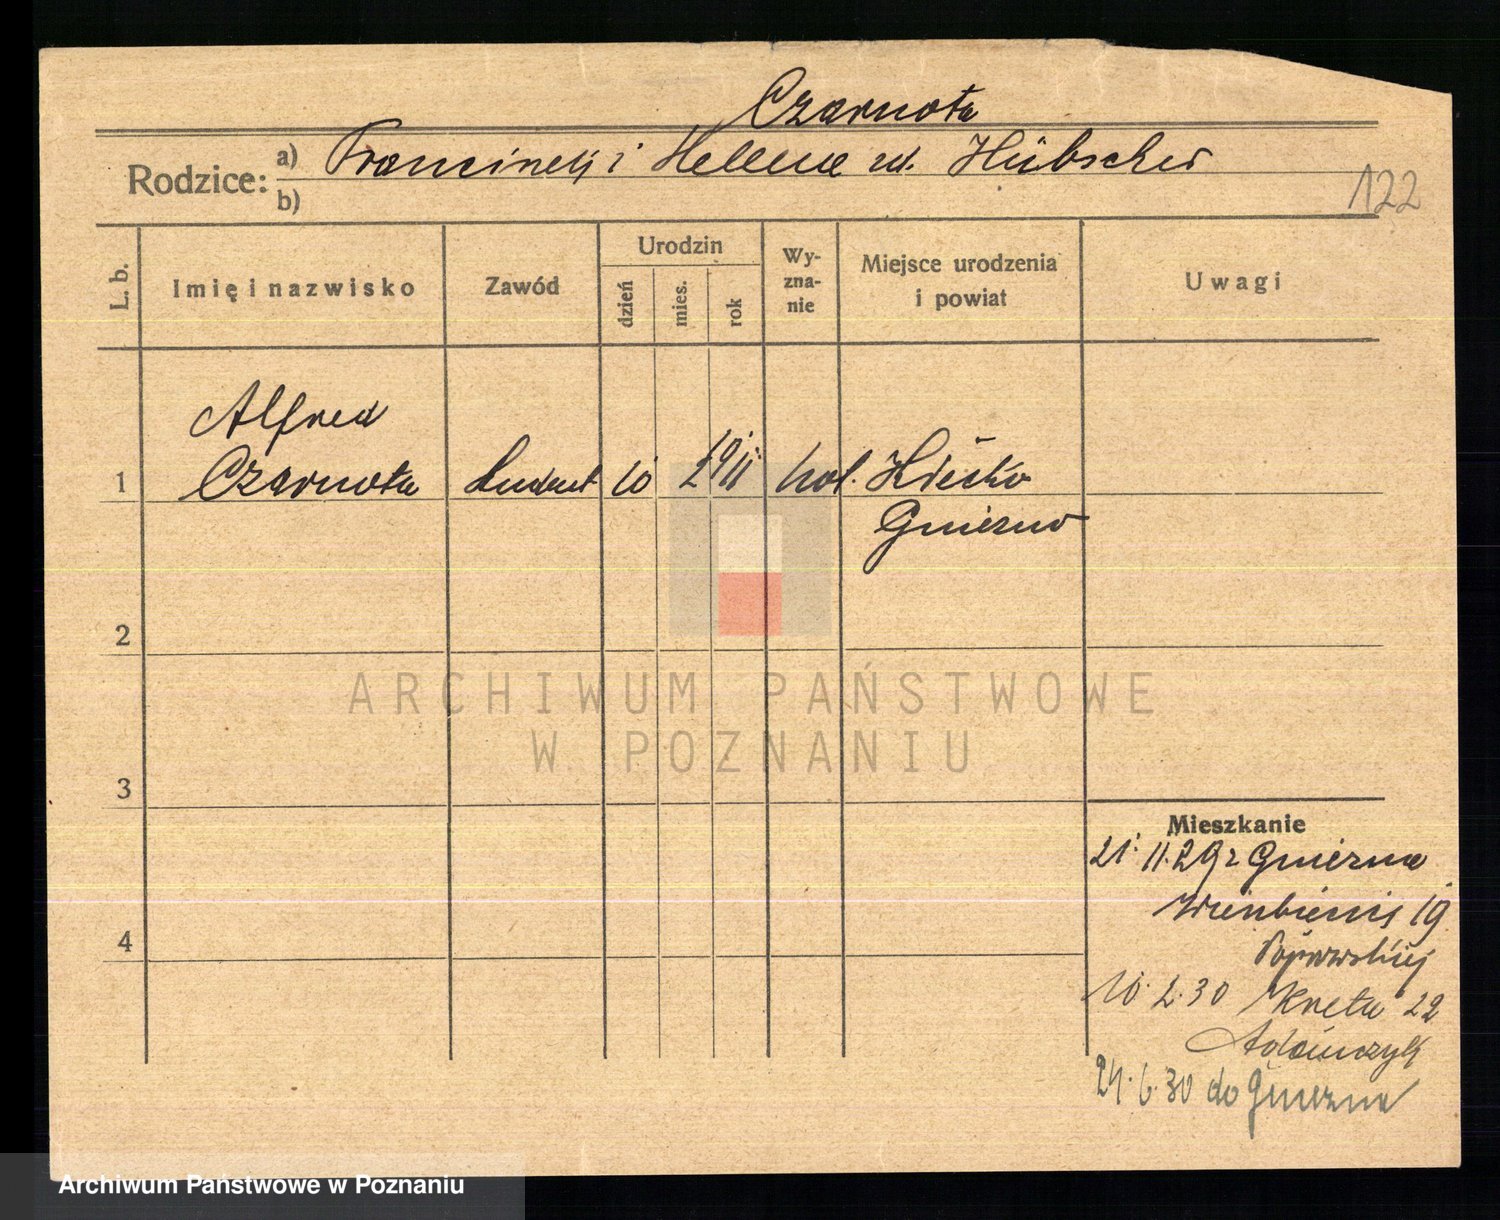 Czarnota
Rodzice: a) Franciszek i Helena zd. Hübscher
b)
122
L. b.
Imię i nazwisko
Zawód
Urodzin
dzień
mies.
rok
Wy-
zna-
nie
Miejsce urodzenia
i powiat
Uwagi
Alfred
1 Czarnota student 10 kat. Kłecko
Gniezno
2
3
4
Mieszkanie
21. 11. 29 z Gniezna
19
10. 2. 30 Kręta 22
Adamczyk
24. 6. 30 do Gniezna
ARCHIWUM PAŃSTWOWE
W POZNANIU
Archiwum Państwowe w Poznaniu